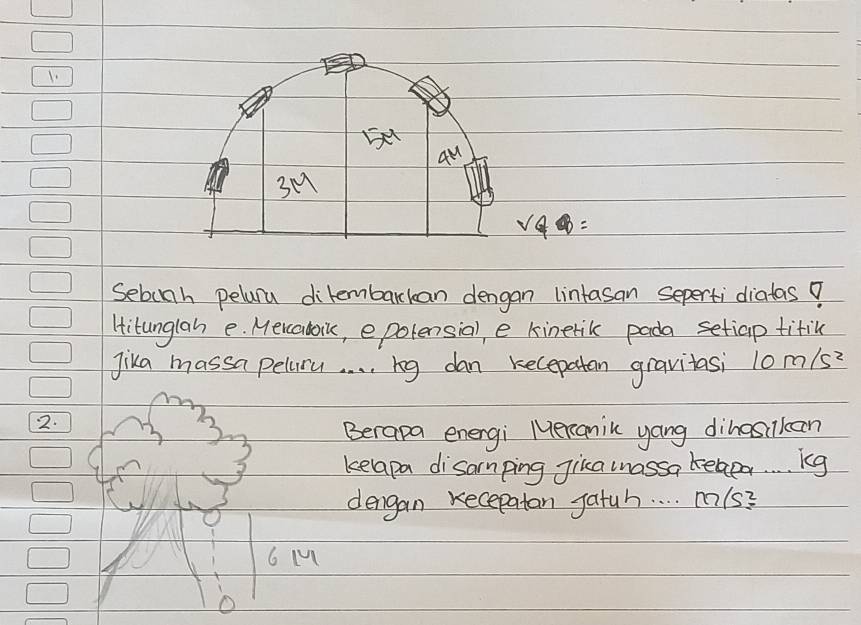 1.
3M
5M
4M
V4 =
Sebuah peluru ditembakkan dengan lintasan seperti diatas !
Hitunglah e. Mekanik, e potensial, e kinetik pada setiap titik
Jika massa peluru .... kg dan kecepatan gravitasi 10 m/s²
2.
Berapa energi Mekanik yang dihasilkan
kelapa disamping jika massa kelapa .... kg
dengan kecepatan jatuh .... m/s²
6 M